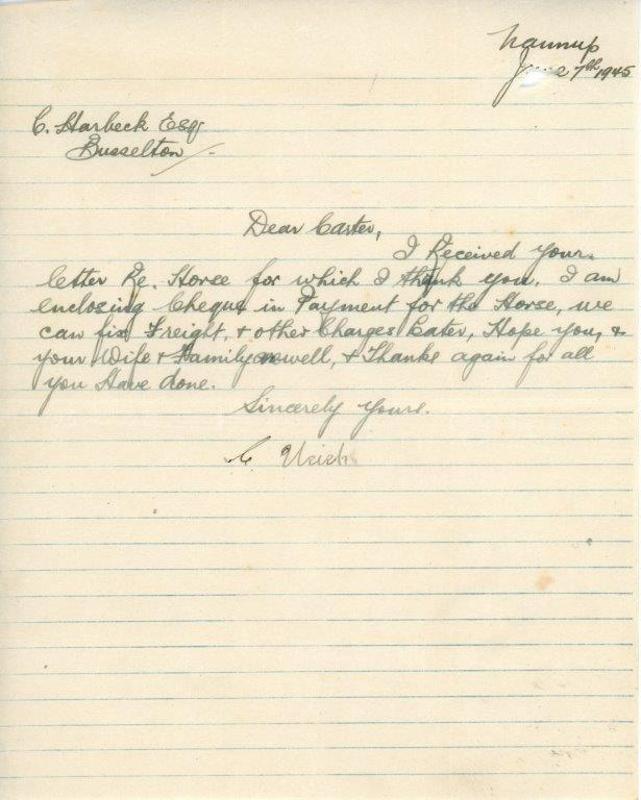 Nannup
June 7th, 1945
C. Harbeck Esq
Busselton
Dear Caster,
I Received your
letter Re. Horse for which I thank you. I am
enclosing Cheque in Payment for the Horse, we
can fix Freight, & other Charges Later, Hope you, &
your Wife & Family are well, & Thanks again for all
you Have done.
Sincerely yours.
C